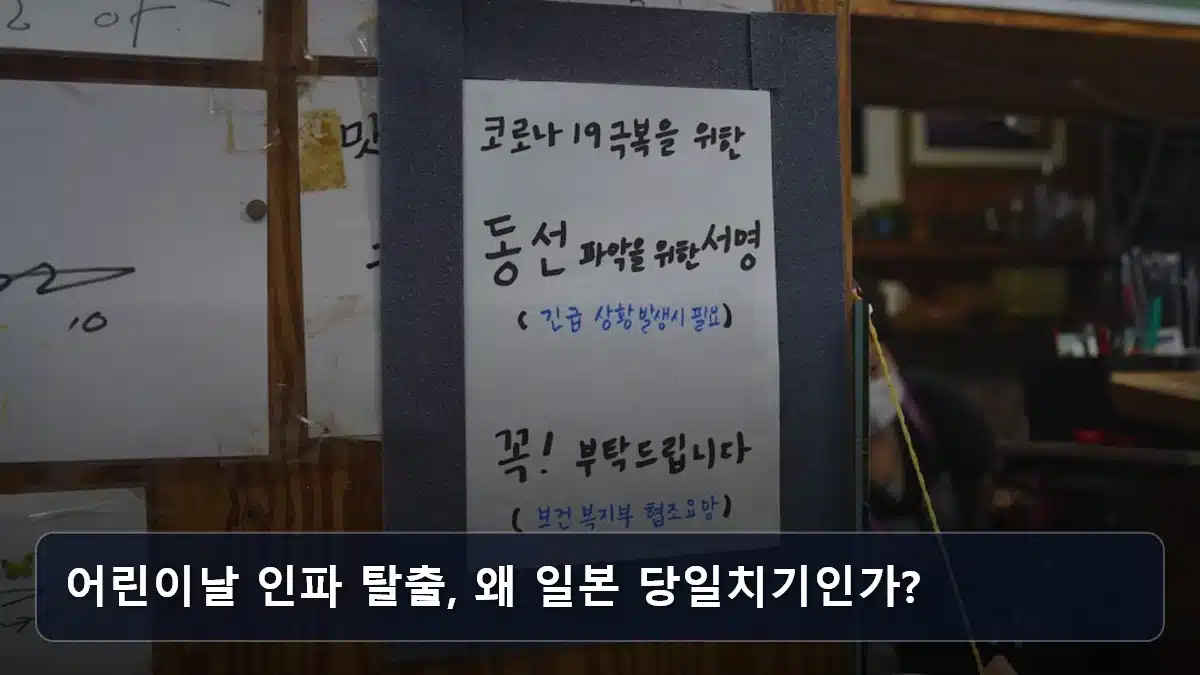 맛
10
코로나 19 극복을 위한
동선 파악을 위한 서명
( 긴급 상황 발생시 필요)
꼭! 부탁드립니다
( 보건복지부 협조요망)
어린이날 인파 탈출, 왜 일본 당일치기인가?